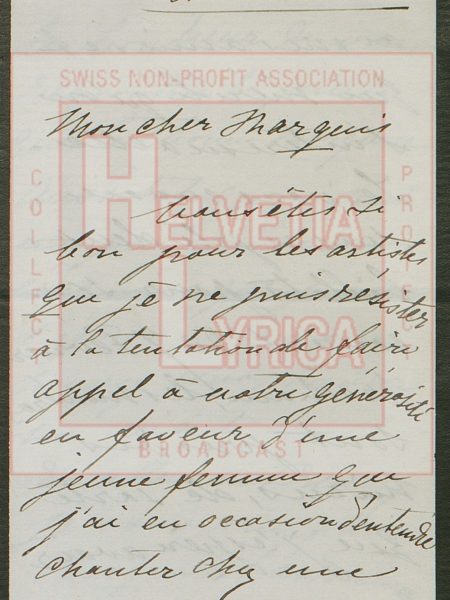 SWISS NON-PROFIT ASSOCIATION
Mon cher Marquis
Vous êtes si
bon pour les artistes
que je ne puis résister
à la tentation de faire
appel à votre générosité
en faveur d'une
jeune femme que
j'ai eu occasion d'entendre
chanter chez une
HELVETIA
LYRICA
BROADCAST
COLLECT